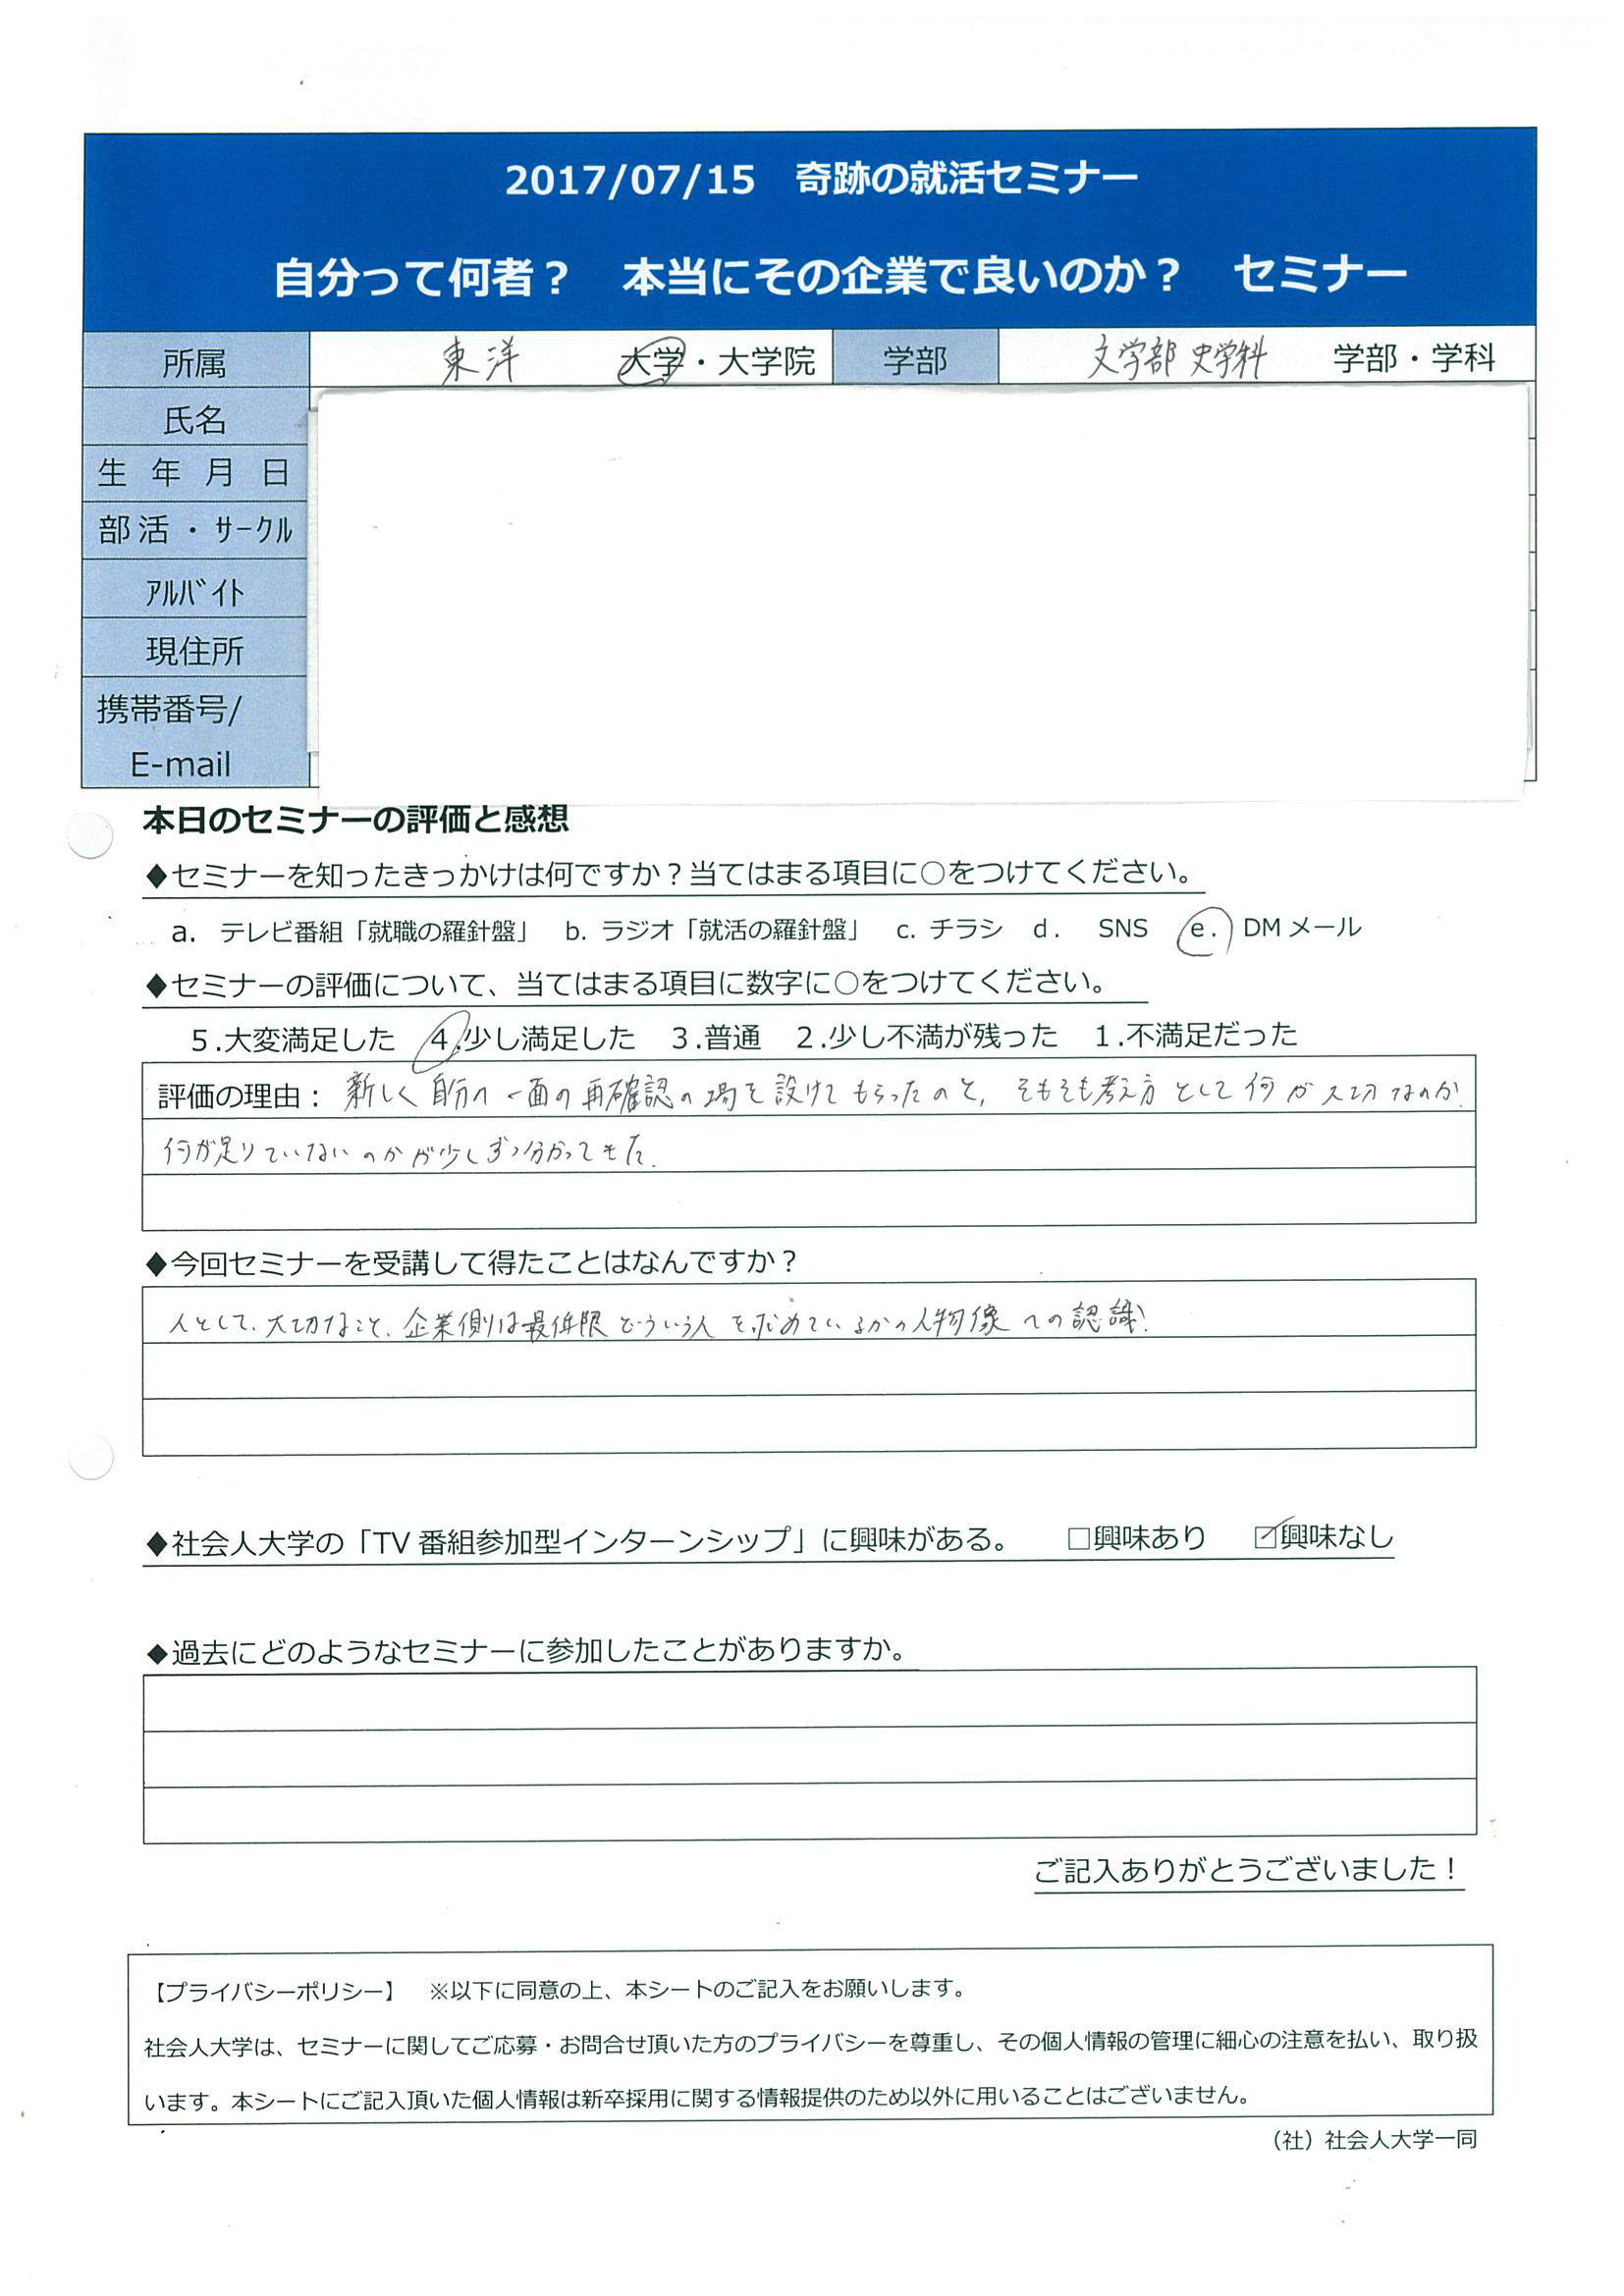 2017/07/15　奇跡の就活セミナー
自分って何者？　本当にその企業で良いのか？　セミナー
所属　東洋　大学・大学院　学部　文学部 史学科　学部・学科
氏名
生年月日
部活・ｻｰｸﾙ
ｱﾙﾊﾞｲﾄ
現住所
携帯番号/
E-mail
本日のセミナーの評価と感想
◆セミナーを知ったきっかけは何ですか？当てはまる項目に○をつけてください。
a. テレビ番組「就職の羅針盤」 b. ラジオ「就活の羅針盤」 c. チラシ d. SNS e. DMメール
◆セミナーの評価について、当てはまる項目に数字に○をつけてください。
5.大変満足した 4.少し満足した 3.普通 2.少し不満が残った 1.不満足だった
評価の理由：新しく自分の一面の再確認の場を設けてもらったのと、そもそも考え方として何が大切なのか、
何が足りていないのかが少しずつ分かってきた。
◆今回セミナーを受講して得たことはなんですか？
人として、大切なこと、企業側は最低限どういう人を求めているかの人物像への認識！
◆社会人大学の「TV番組参加型インターンシップ」に興味がある。 □興味あり ☑興味なし
◆過去にどのようなセミナーに参加したことがありますか。
ご記入ありがとうございました！
【プライバシーポリシー】　※以下に同意の上、本シートのご記入をお願いします。
社会人大学は、セミナーに関してご応募・お問合せ頂いた方のプライバシーを尊重し、その個人情報の管理に細心の注意を払い、取り扱
います。本シートにご記入頂いた個人情報は新卒採用に関する情報提供のため以外に用いることはございません。
（社）社会人大学一同